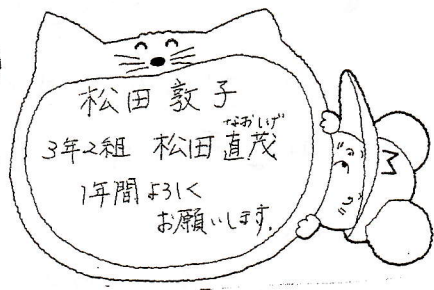 松田敦子
3年2組 松田直茂
なおしげ
1年間よろしく
お願いします。
M